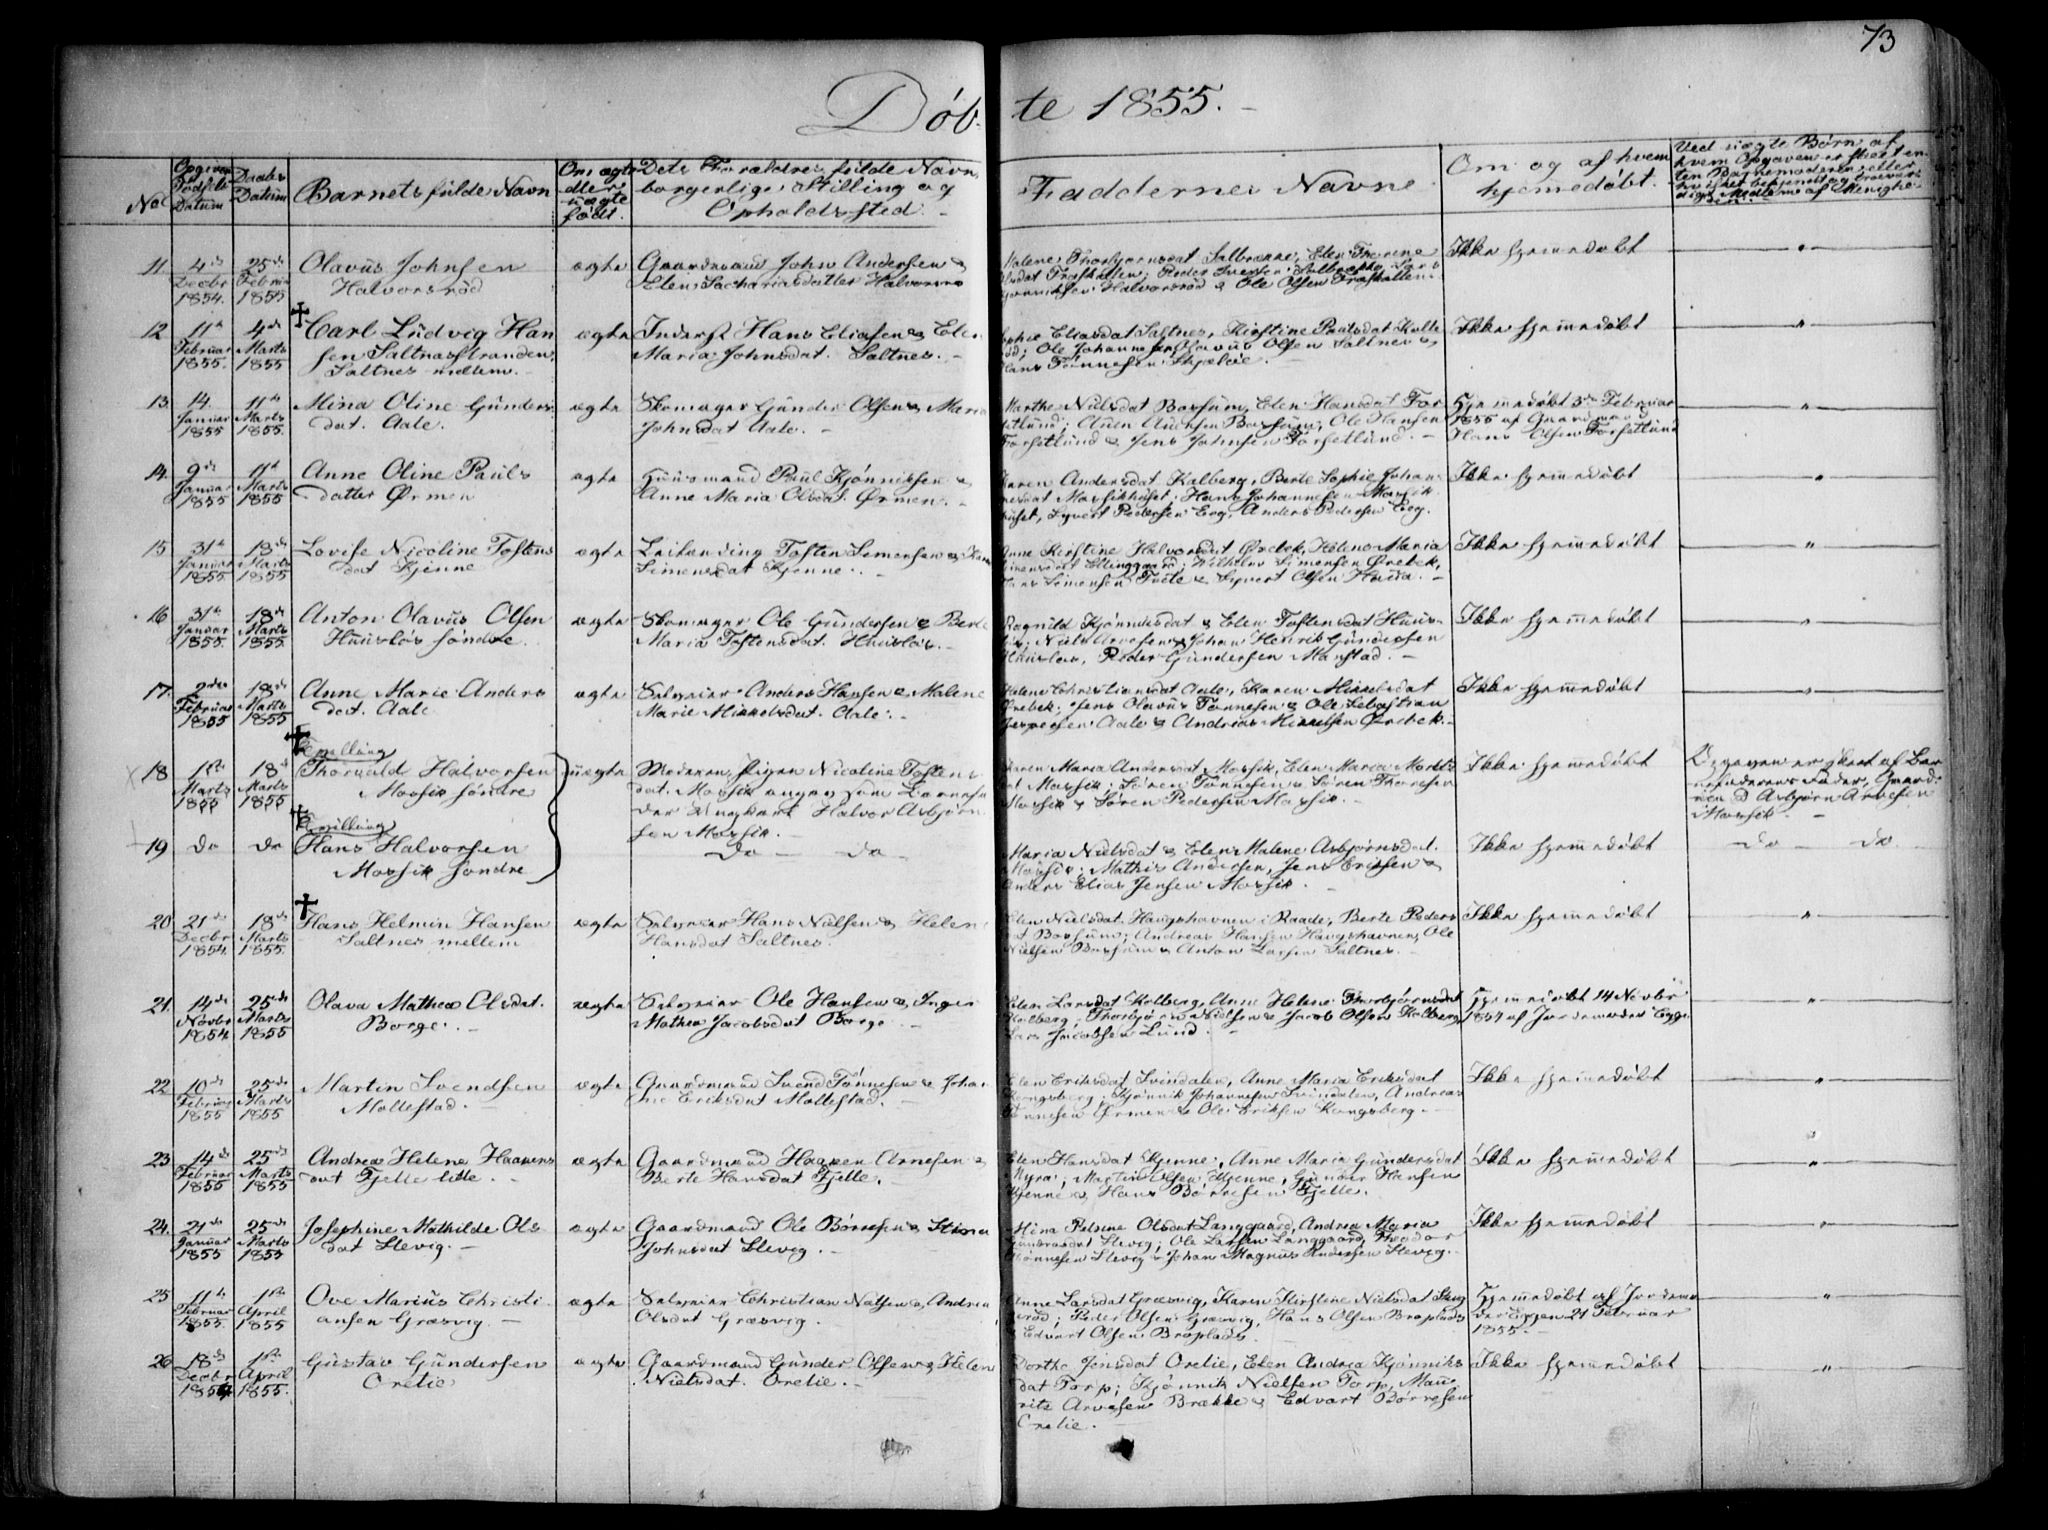 73
Döbte 1855.
No
Opgiven Födsels Datum
Daabs Datum
Barnets fulde Navn
Om ægte eller uægte födt.
Dets Forældres fulde Navn borgerlige Stilling og Opholdssted.
Faddernes Navne
Om og af hvem hjemedöbt.
Ved uægte Börn af hvem Opgaven er skeet
11. 4de Decbr 1854. 25de Februar 1855
Olavus Johnsen
Halvorsröd
ægte
Gaardmand John Andersen &
Elen Sachariasdatter Halvorsrö
Malene Thorbjörnsdat Salbrække, Elen Therene
Halvorsröd & Ole Olsen
Ikke hjemmedöbt
12 11te Februar 1855. 4de Marts 1855
Carl Ludvig Han
sen Saltnæsstranden,
Saltnes mellem.
ægte
Inderst Hans Eliasen & Elen
Maria Johnsdat. Saltnes.
Eliasdat Saltnes, Kirstine Paulsdat Kolle
röd; Ole Johannesen, Olavus Olsen Saltnes &
Hans Tönnesen Skjæløe.
Ikke hjemmedöbt
13. 14. Januar 1855 11te Marts 1855.
Mina Oline Gunders
dat. Aale.
ægte
Skomager Gunder Olsen & Maria
Johnsdat Aale.
Marthe Nielsdat Bossum, Elen Hansdat For
setlund; Bossum, Ole Hansen
Forsetlund & Jens Johnsen Forsetlund.
Hjemmedöbt 3die Februar
1855 af Gaardmand
Hans Olsen Forsetlund
14. 9de Januar 1855 11te Marts 1855
Anne Oline Pauls
datter Örmen
ægte
Huusmand Paul Kjönniksen &
Anne Maria Olsdat. Örmen.
Karen Andersdat Kalberg, Berte Sophie Johan
nesdat Mossikhuset, Hans Johannesen Mossik
huset, Syvert Pedersen Eeg, Anders Pedersen Eeg.
Ikke hjemmedöbt
15 31te Januar 1855 18de Marts 1855
Lovise Nicoline Tostens
dat Kjenne
ægte
Tosten Simensen &
Simensdat Kjenne.
Anne Kirstine Halvorsdat Örebek, Helene Maria
Simensdat Ellinggaard; Wilhelm Simensen Örebek,
Hans Simensen & Syvert Olsen
Ikke hjemmedöbt
16 31te Januar 1855. 18de Marts 1855.
Anton Olavus Olsen
Huuslös söndre.
ægte
Skomager Ole Gundersen & Berte
Maria Tostensdat. Huuslös.
Ragnild Kjönniksdat & Elen Tostensdat Huus
lös, Niels Arvesen & Johan Henrik Gundersen
Huuslös, Peder Gundersen Manstad.
Ikke hjemmedöbt
17. 2den Februar 1855 18de Marts 1855
Anne Marie Anders
dat. Aale
ægte
Selveier Anders Hansen & Malene
Marie Mikkelsdat. Aale.
Helene Christiansdat Aale, Karen Mikkelsdat
Örebek; Jens Olavus Tönnesen & Ole Sebastian
Jespersen Aale & Andreas Mikkelsen Örebek.
Ikke hjemmedöbt
18 1ste Marts 1855 18de Marts 1855
Tvilling
Thorvald Halvorsen
Mossik söndre
uægte
Moderen, Pigen Nicoline Tostens
dat. Mossik angav som Barnefa
der Ungkarl Halvor Asbjörn
sen Mossik.
Karen Maria Andersdat Mossik, Elen Maria
Mossik; Sören Tönnesen & Sören Thoresen
Mossik & Sören Pedersen Mossik.
Ikke hjemmedöbt
Opgaven er skeet af Bar
nefaderens Fader, Gaard
mand Asbjörn Arvesen
Mossik.
19 do do
Tvilling
Hans Halvorsen
Mossik söndre
do do
Maria Nielsdat & Elen Malene Asbjörnsdat.
Mossik; Mathis Andersen, Jens Eriksen &
Anders Elias Jensen Mossik.
Ikke hjemmedöbt
do do
20 21de Decbr 1854. 18de Marts 1855.
Hans Helmin Hansen
Saltnes mellem
ægte
Selveier Hans Nielsen & Helene
Hansdat Saltnes.
Elen Nielsdat. Haugshavnen i Raade, Berte Peders
dat Bossum; Andreas Hansen Haugshavnen, Ole
Nielsen Bossum & Anton Larsen Saltnes.
Ikke hjemmedöbt
21. 14de Novbr 1854. 25de Marts 1855
Olava Mathea Olsdat.
Borge.
ægte
Selveier Ole Hansen & Inger
Mathea Jacobsdat Borge
Elen Larsdat Kolberg, Anne Helene Thorbjörnsdat
Kolberg, Thorbjörn Nielsen & Jacob Olsen Kolberg,
Lars Jacobsen Lund.
Hjemmedöbt 14 Novbr
1854 af Jordemoder Egge
22 10de Februar 1855 25de Marts 1855
Martin Svendsen
Mollestad.
ægte
Gaardmand Svend Tönnesen & Johan
ne Eriksdat Mollestad.
Elen Eriksdat Svindalen, Anne Maria Eriksdat
Kongsberg; Kjönnik Johannesen Svindalen, Andreas
Tönnesen Örmen & Ole Eriksen Kongsberg.
Ikke hjemmedöbt
23. 14de Februar 1855 25de Marts 1855
Andrea Helene Haagens
dat Fjelle lille.
ægte
Gaardmand Haagen Arnesen &
Berte Hansdat Fjelle.
Elen Hansdat Kjenne, Anne Maria Gundersdat
Myra; Martin Olsen Kjenne, Gunder Hansen
Kjenne & Hans Börresen Fjelle.
Ikke hjemmedöbt
24. 21de Januar 1855 25de Marts 1855
Josephine Mathilde Ols
dat Slevig.
ægte
Gaardmand Ole Börresen & Stina
Johnsdat Slevig.
Mina Peline Olsdat Langgaard, Andrea Maria
Slevig; Ole Larsen Langgaard, Theodor
Tönnesen Slevig & Johan Magnus Andersen Slevig.
Ikke hjemmedöbt
25 11te Februar 1855. 1ste April 1855
Ove Marius Christi
ansen Græsvig.
ægte
Selveier Christian Nielsen & Andrea
Olsdat Græsvig.
Anne Larsdat Græsvig, Karen Kirstine Nielsdat
Peder Olsen Græsvig, Hans Olsen Braplads
& Edvart Olsen Braplads.
Hjemmedöbt af Jordemo
der Eggen 21 Februar
1855.
26 18de Decbr 1854 1ste April 1855.
Gustav Gundersen
Orelie
ægte
Gaardmand Gunder Olsen & Helene
Nielsdat. Orelie.
Dorthe Jensdat Orelie, Elen Andrea Kjönniks
dat Torp; Kjönnik Nielsen Torp, Mau
ritz Arvesen Brække & Edvart Börresen
Orelie.
Ikke hjemmedöbt